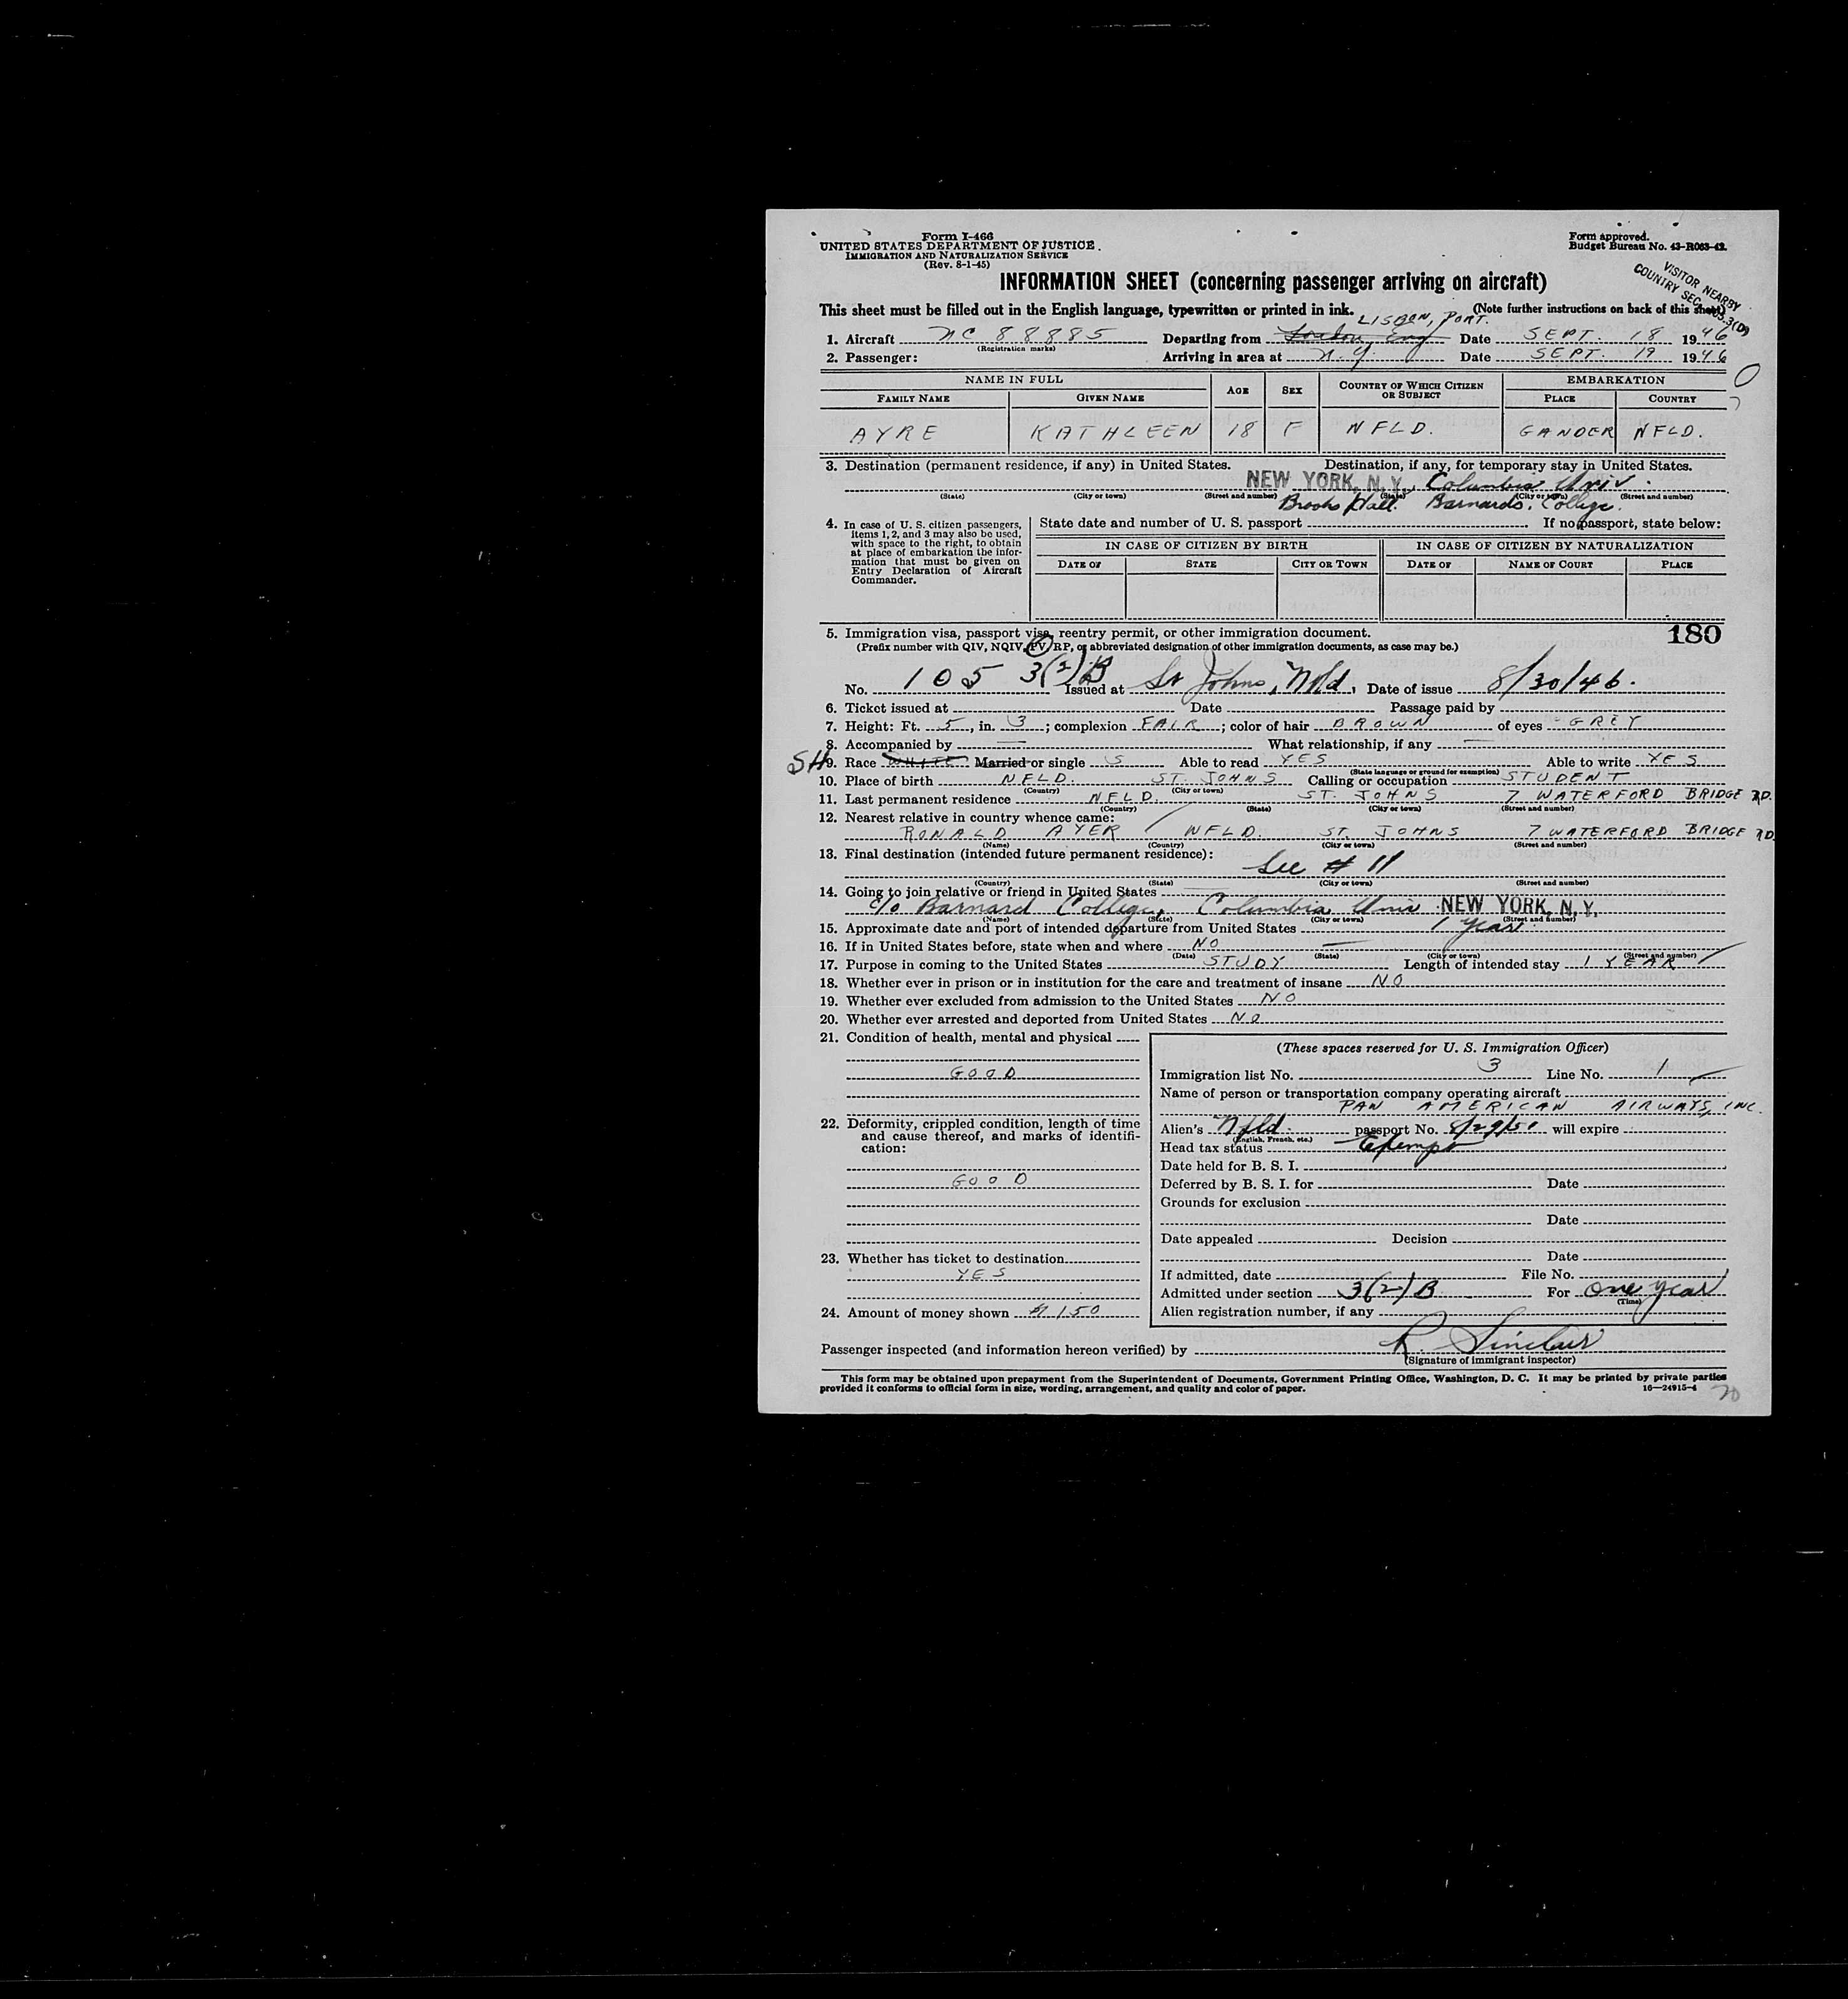 Form I-466
UNITED STATES DEPARTMENT OF JUSTICE
IMMIGRATION AND NATURALIZATION SERVICE
(Rev. 8-1-45)
Form approved.
Budget Bureau No. 43-R063-42.
INFORMATION SHEET (concerning passenger arriving on aircraft)
VISITOR NEARBY
COUNTRY SEC.
This sheet must be filled out in the English language, typewritten or printed in ink. (Note further instructions on back of this sheet)
LISBON, PORT.
1. Aircraft NC 88885 Departing from London, Eng Date SEPT. 18 1946
(Registration marks)
2. Passenger: Arriving in area at N.Y. Date SEPT. 19 1946
NAME IN FULL AGE SEX COUNTRY OF WHICH CITIZEN OR SUBJECT EMBARKATION
FAMILY NAME GIVEN NAME PLACE COUNTRY
AYRE KATHLEEN 18 F NFLD. GANDER NFLD.
3. Destination (permanent residence, if any) in United States. Destination, if any, for temporary stay in United States.
NEW YORK, N.Y. Columbia Univ.
(State) (City or town) (Street and number) (State) (City or town) (Street and number)
Brooks Hall. Barnards. College.
4. In case of U. S. citizen passengers, items 1, 2, and 3 may also be used, with space to the right, to obtain at place of embarkation the information that must be given on Entry Declaration of Aircraft Commander.
State date and number of U. S. passport If no passport, state below:
IN CASE OF CITIZEN BY BIRTH IN CASE OF CITIZEN BY NATURALIZATION
DATE OF STATE CITY OR TOWN DATE OF NAME OF COURT PLACE
180
5. Immigration visa, passport visa, reentry permit, or other immigration document.
(Prefix number with QIV, NQIV, PV, RP, or abbreviated designation of other immigration documents, as case may be.)
No. 105 3(2)B Issued at St Johns, Nfld, Date of issue 8/30/46.
6. Ticket issued at Date Passage paid by
7. Height: Ft. 5, in. 3; complexion FAIR; color of hair BROWN of eyes GREY
8. Accompanied by — What relationship, if any —
SH 9. Race WHITE Married or single S Able to read YES Able to write YES
(State language or ground for exemption)
10. Place of birth NFLD. ST. JOHNS Calling or occupation STUDENT
(Country) (City or town)
11. Last permanent residence NFLD. ST. JOHNS 7 WATERFORD BRIDGE RD.
(Country) (State) (City or town) (Street and number)
12. Nearest relative in country whence came:
RONALD AYER NFLD. ST. JOHNS 7 WATERFORD BRIDGE RD
(Name) (Country) (City or town) (Street and number)
13. Final destination (intended future permanent residence):
See # 11
(Country) (State) (City or town) (Street and number)
14. Going to join relative or friend in United States
c/o Barnard College, Columbia Univ NEW YORK, N.Y.
(Name) (State) (City or town) (Street and number)
15. Approximate date and port of intended departure from United States 1 year
16. If in United States before, state when and where NO —
(Date) (State) (City or town) (Street and number)
17. Purpose in coming to the United States STUDY Length of intended stay 1 YEAR
18. Whether ever in prison or in institution for the care and treatment of insane NO
19. Whether ever excluded from admission to the United States NO
20. Whether ever arrested and deported from United States NO
21. Condition of health, mental and physical
GOOD
22. Deformity, crippled condition, length of time
and cause thereof, and marks of identifi-
cation:
GOOD
23. Whether has ticket to destination
YES
24. Amount of money shown $150
(These spaces reserved for U. S. Immigration Officer)
Immigration list No. 3 Line No. 1
Name of person or transportation company operating aircraft
PAN AMERICAN AIRWAYS, INC.
Alien's Nfld. passport No. 8/29/51 will expire
(English, French, etc.)
Head tax status Exempt
Date held for B. S. I.
Deferred by B. S. I. for Date
Grounds for exclusion
Date
Date appealed Decision
Date
If admitted, date File No.
Admitted under section 3(2)B For One year
(Time)
Alien registration number, if any
Passenger inspected (and information hereon verified) by R. Sinclair
(Signature of immigrant inspector)
This form may be obtained upon prepayment from the Superintendent of Documents, Government Printing Office, Washington, D. C. It may be printed by private parties
provided it conforms to official form in size, wording, arrangement, and quality and color of paper. 16—24915-4
20